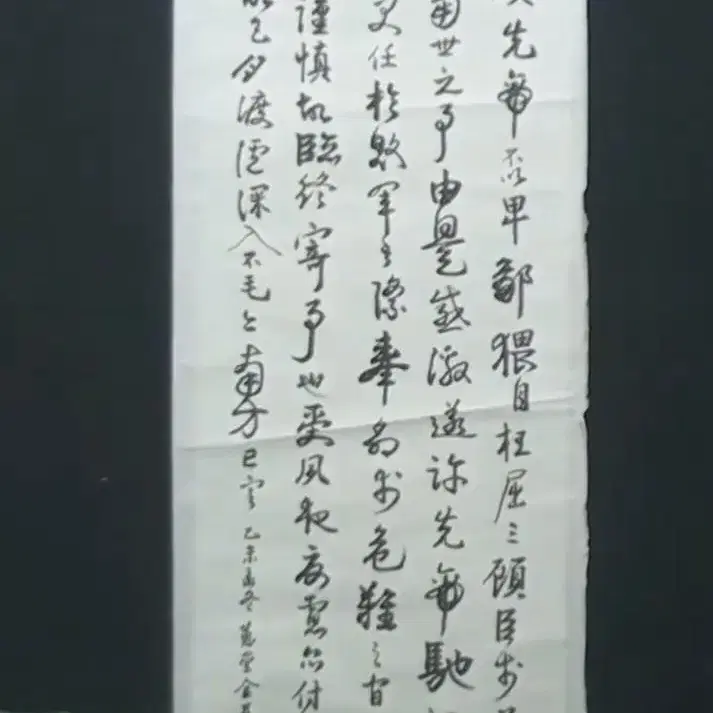 先帝不以卑鄙猥自枉屈三顧臣於
當世之事由是感激遂許先帝馳
受任於敗軍之際奉命於危難之間
謹慎故臨終寄事也受夙夜憂慮恐付
故五月渡瀘深入不毛今南方已定
乙未孟冬 堂金